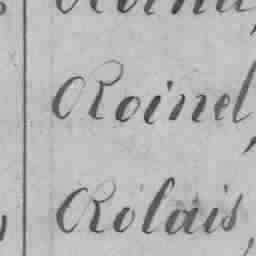 Roinel,
Rolais,